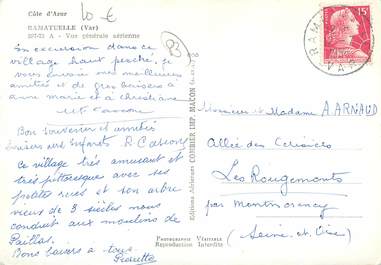 Côte d'Azur
10 €
RAMATUELLE (Var)
A - Vue générale aérienne
83
En excursion dans ce
village haut perché, je
vous envoie mes meilleures
amitiés et de gros baisers à
anne marie et à christiane
Bon souvenir et amitiés
Baisers aux enfants
Ce village très amusant et
très pittoresque avec ses
petites rues et son arbre
vieux de 3 siècles nous
conduit aux moulins de
Paillas.
Bons baisers à tous.
Pierrette
Editions Aériennes COMBIER IMP. MACON
Photographie Véritable
Reproduction Interdite
RAM
VAR
15F
Monsieur et Madame A. ARNAUD
Allée des Cerisiers
Les Rougemonts
par Montmorency
(Seine et Oise)